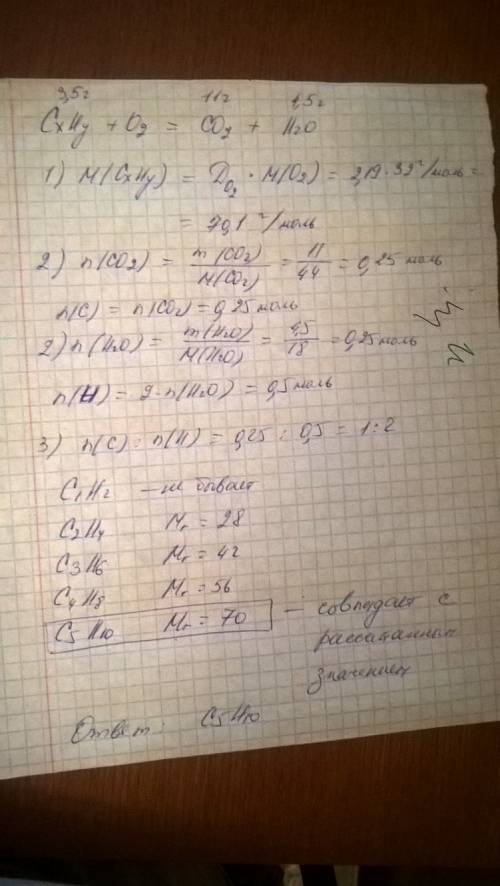 3,5г 11г 4,5г
CxHy + O2 = CO2 + H2O
1) M(CxHy) = DO2 · M(O2) = 2,19·32 г/моль =
= 70,1 г/моль
2) n(CO2) = m(CO2)/M(CO2) = 11/44 = 0,25 моль
n(C) = n(CO2) = 0,25 моль
2) n(H2O) = m(H2O)/M(H2O) = 4,5/18 = 0,25 моль
n(H) = 2·n(H2O) = 0,5 моль
3) n(C) : n(H) = 0,25 : 0,5 = 1:2
C1H2 — не бывает
C2H4 Mr = 28
C3H6 Mr = 42
C4H8 Mr = 56
C5H10 Mr = 70 — совпадает с
рассчитанным
значением
Ответ: C5H10